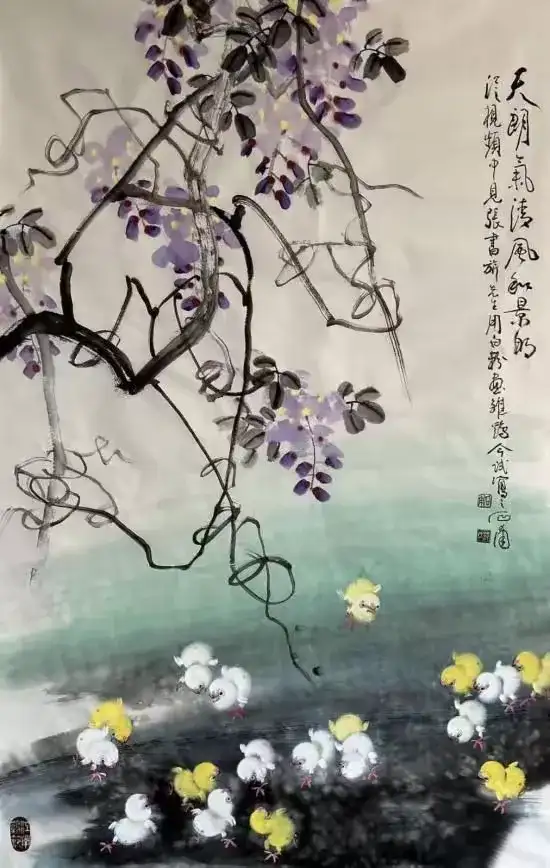 天朗氣清風和景明
從視頻中見張書旂先生用白粉畫雛鷄今試寫之